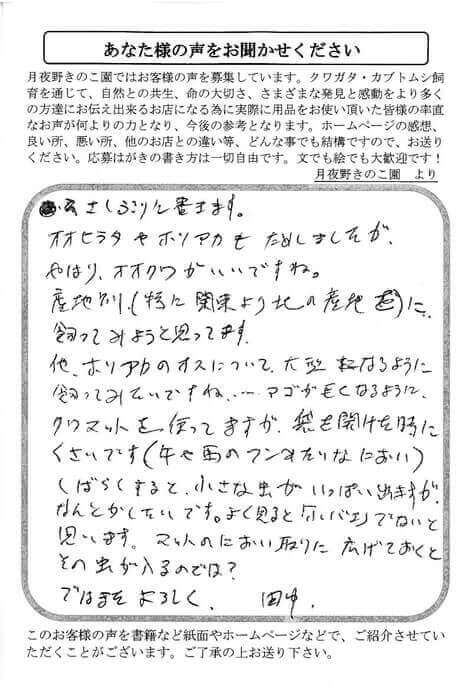 あなた様の声をお聞かせください
月夜野きのこ園ではお客様の声を募集しています。クワガタ・カブトムシ飼
育を通じて、自然との共生、命の大切さ、さまざまな発見と感動をより多く
の方達にお伝え出来るお店になる為に実際に用品をお使い頂いた皆様の率直
なお声が何よりの力となり、今後の参考となります。ホームページの感想、
良い所、悪い所、他のお店との違い等、どんな事でも結構ですので、お送り
ください。応募はがきの書き方は一切自由です。文でも絵でも大歓迎です！
月夜野きのこ園　より
書きます。
オオヒラタやホリアカも ためしましたが、
やはり、オオクワがいいですね。
産地別、(特に関東より北の産地)に、
飼ってみようと思ってます。
他、ホリアカのオスについて、大型になるように
飼ってみたいですね、…. アゴが長くなるように、
クワマットを使ってますが、袋を開けた時に
くさいです(牛や馬のフンみたいなにおい)
しばらくすると、小さな虫がいっぱい出ますが、
なんとかしたいです。よく見ると「コバエ」でないと
思います。マットのにおい取りに広げておくと
その虫が入るのでは？
ではまた よろしく、　田中.
このお客様の声を書籍など紙面やホームページなどで、ご紹介させてい
ただくことがございます。ご了承の上お送り下さい。